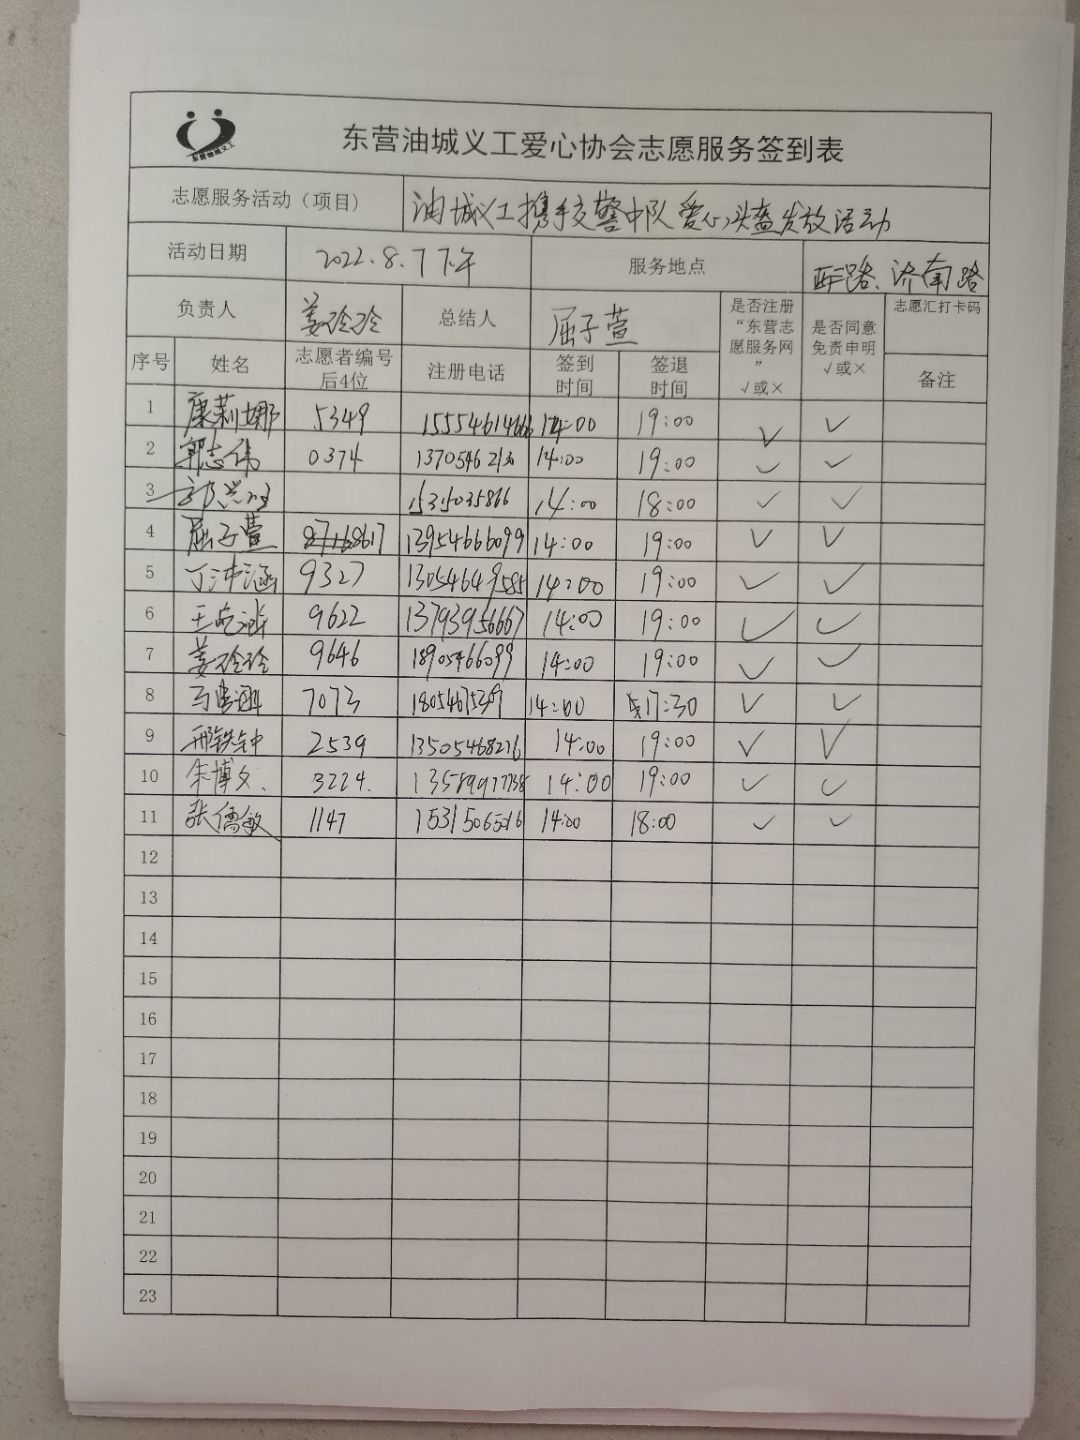 东营油城义工
东营油城义工爱心协会志愿服务签到表
志愿服务活动（项目） 油城义工携手交警中队爱心头盔发放活动
活动日期 2022.8.7下午 服务地点 西三路、济南路
负责人 姜玲玲 总结人 屈子萱 是否注册“东营志愿服务网” √或× 是否同意免责申明 √或× 志愿汇打卡码
序号 姓名 志愿者编号后4位 注册电话 签到时间 签退时间 备注
1 康莉娜 5349 15554614666 14:00 19:00 ✓ ✓
2 郭志伟 0374 14:00 19:00 ✓ ✓
3 14:00 18:00 ✓ ✓
4 屈子萱 8617 13954666099 14:00 19:00 ✓ ✓
5 丁沛涵 9327 13054649585 14:00 19:00 ✓ ✓
6 9622 13793956667 14:00 19:00 ✓ ✓
7 姜玲玲 9646 18905466099 14:00 19:00 ✓ ✓
8 7073 14:00 17:30 ✓ ✓
9 邢铁钟 2539 13505468216 14:00 19:00 ✓ ✓
10 朱博文 3224 13589977738 14:00 19:00 ✓ ✓
11 张儒敏 1147 14:00 18:00 ✓ ✓
12
13
14
15
16
17
18
19
20
21
22
23